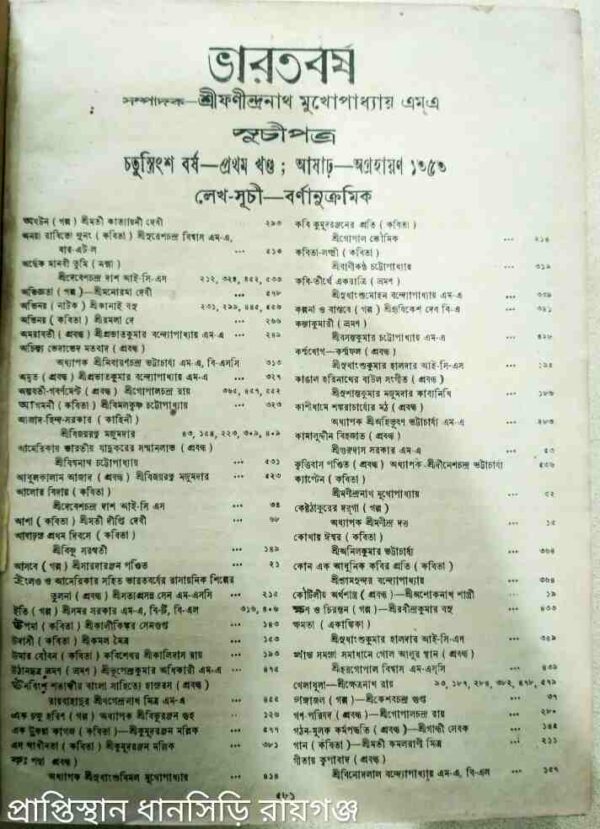 ভারতবর্ষ
সম্পাদক—শ্রীফণীন্দ্রনাথ মুখোপাধ্যায় এম্‌এ
সূচীপত্র
চতুস্ত্রিংশ বর্ষ—প্রথম খণ্ড ; আষাঢ়—অগ্রহায়ণ ১৩৫৩
লেখ-সূচী—বর্ণানুক্রমিক
অঘটন ( গল্প ) শ্রীমতী কাত্যায়নী দেবী ... ২৯৩
( কবিতা ) শ্রীসুরেশচন্দ্র বিশ্বাস এম-এ,
বার-এট-ল ... ৫১৩
অর্দ্ধেক মানবী তুমি ( নক্সা )
শ্রীদেবেশচন্দ্র দাশ আই-সি-এস ২১২, ৩২৪, ৪৫২, ৫৩৩
অভিজ্ঞতা ( গল্প )—শ্রীমনোরমা দেবী ... ৫৭৮
অভিনয় ( নাটক ) শ্রীকানাই বসু ২৩১, ২৯৯, ৪৪৫, ৪৫৬
অভিনয় ( কবিতা ) শ্রীরমলা দে ... ২৬৬
অমরাবতী ( প্রবন্ধ ) শ্রীপ্রভাতকুমার বন্দ্যোপাধ্যায় এম-এ ... ২৪৯
অচিন্ত্য ভেদাভেদ মতবাদ ( প্রবন্ধ )
অধ্যাপক শ্রীনিবারণচন্দ্র ভট্টাচার্য্য এম-এ, বি-এসসি ৩১৩
অমৃত ( প্রবন্ধ ) শ্রীপ্রভাতকুমার বন্দ্যোপাধ্যায় এম-এ ... ৩২৭
অন্তবর্তী-গবর্ণমেন্ট ( প্রবন্ধ ) শ্রীগোপালচন্দ্র রায় ৩৬৫, ৪৫৭, ৫৫২
আগমনী ( কবিতা ) শ্রীবিমলকৃষ্ণ চট্টোপাধ্যায় ... ৩২৩
আজাদ-হিন্দ-সরকার ( কাহিনী )
শ্রীবিজয়রত্ন মজুমদার ৪৩, ১৫৪, ২২৩, ৩০৯, ৪০৯
আমেরিকায় ভারতীয় যাদুকরের সম্মানলাভ ( প্রবন্ধ )
শ্রীবিশ্বনাথ চট্টোপাধ্যায় ... ৫৩১
আবুলকালাম আজাদ ( প্রবন্ধ ) শ্রীবিজয়রত্ন মজুমদার ... ৫২৩
আলোর বিদায় ( কবিতা )
শ্রীদেবেশচন্দ্র দাশ আই-সি এস ... ৩৪
আশা ( কবিতা ) শ্রীমতী দীপ্তি দেবী ... ৩৮
আষাঢ়স্য প্রথম দিবসে ( কবিতা )
শ্রীবিষ্ণু সরস্বতী ... ১৪৯
আসবে ( গল্প ) শ্রীসারদারঞ্জন পণ্ডিত ... ২১
ইংলণ্ড ও আমেরিকার সহিত ভারতবর্ষের রাসায়নিক শিল্পের
তুলনা ( প্রবন্ধ ) শ্রীসত্যপ্রসন্ন সেন এম-এসসি ... ২১৫
ইতি ( গল্প ) শ্রীসমর সরকার এম-এ, বি-টি, বি-এল ৩১৬, ৪০৬
উপমা ( কবিতা ) শ্রীকালীকিঙ্কর সেনগুপ্ত ... ১৪০
উদাসী ( কবিতা ) শ্রীকমল মৈত্র ... ১৫৩
উমার যৌবন ( কবিতা ) কবিশেখর শ্রীকালিদাস রায় ... ১৩৫
( ভ্রমণ ) শ্রীভূপেন্দ্রকুমার অধিকারী এম-এ ... ৪৭৫
ঊনবিংশ শতাব্দীর বাংলা সাহিত্যে হাস্যরস ( প্রবন্ধ )
রায়বাহাদুর শ্রীখগেন্দ্রনাথ মিত্র এম-এ ... ৪৫৫
এক চক্ষু হরিণ ( গল্প ) অধ্যাপক শ্রীবিষ্ণুরঞ্জন গুহ ... ১২৩
এক টুকরা কাগজ ( কবিতা )—শ্রীকুমুদরঞ্জন মল্লিক ... ৫৭৭
এস স্বাধীনতা ( কবিতা ) শ্রীকুমুদরঞ্জন মল্লিক ... ৩৮১
কঃ পন্থা ( প্রবন্ধ )
অধ্যাপক শ্রীসুধাংশুবিমল মুখোপাধ্যায় ... ৪১৪
কবি কুমুদরঞ্জনের প্রতি ( কবিতা )
শ্রীগোপাল ভৌমিক ... ২১৪
কবিতা-লক্ষ্মী ( কবিতা )
শ্রীবাণীকণ্ঠ চট্টোপাধ্যায় ... ৩১৯
কবি-তীর্থে একরাত্রি ( ভ্রমণ )
শ্রীসুধাংশুমোহন বন্দ্যোপাধ্যায় এম-এ ... ৩৩৯
কল্পনা ও বাস্তবে ( গল্প ) শ্রীহৃষিকেশ দেব বি-এ ... ৩৪১
কন্যাকুমারী ( ভ্রমণ )
শ্রীবসন্তকুমার চট্টোপাধ্যায় এম-এ ... ৪২৮
কর্ম্মযোগ—কর্ম্মফল ( প্রবন্ধ )
শ্রীসুধাংশুকুমার হালদার আই-সি-এস ... ১২৫
কাঙ্গাল হরিনাথের বাউল সংগীত ( প্রবন্ধ )
শ্রীশান্তকুমার মজুমদার কাব্যনিধি ... ১৮৬
কাশীধামে শঙ্করাচার্য্যের মঠ ( প্রবন্ধ )
অধ্যাপক শ্রীঅহিভূষণ ভট্টাচার্য্য এম-এ ... ২৮৩
কামালুদ্দীন বিহজাত ( প্রবন্ধ )
শ্রীগুরুদাস সরকার এম-এ ... ৫৩
কৃত্তিবাস পণ্ডিত ( প্রবন্ধ ) অধ্যাপক-শ্রীদীনেশচন্দ্র ভট্টাচার্য্য ৫৩৬
ক্যাপ্টেন ( কবিতা )
শ্রীমণীন্দ্রনাথ মুখোপাধ্যায় ... ৩২
কেষ্টঠাকুরের দরগা ( গল্প )
অধ্যাপক শ্রীমণীন্দ্র দত্ত ... ১৫
কোথায় ঈশ্বর ( কবিতা )
শ্রীঅনিলকুমার ভট্টাচার্য্য ... ৩৬৪
কোন এক আধুনিক কবির প্রতি ( কবিতা )
শ্রীশ্যামসুন্দর বন্দ্যোপাধ্যায় ... ৩৬৪
কৌটিলীয় অর্থশাস্ত্র ( প্রবন্ধ )—শ্রীঅশোকনাথ শাস্ত্রী ... ১৯
ক্ষণ ও চিরন্তন ( গল্প )—শ্রীরবীন্দ্রকুমার বসু ... ৪৩৩
ক্ষমতা ( একাঙ্কিকা )
শ্রীসুধাংশুকুমার হালদার আই-সি-এস ... ৩৪৯
খাদ্য সমস্যা সমাধানে গোল আলুর স্থান ( প্রবন্ধ )
শ্রীহরগোপাল বিশ্বাস এম-এসসি ... ৪৩৯
খেলাধুলা—শ্রীক্ষেত্রনাথ রায় ৯৩, ১৮৭, ২৮৪, ৩৮২, ৪৭৮, ৫৭৯
( গল্প )—শ্রীকেশবচন্দ্র গুপ্ত ... ৩৭
গণ-পরিষদ ( প্রবন্ধ )—শ্রীগোপালচন্দ্র রায় ... ২৮০
গঠন-মূলক কর্মপদ্ধতি ( প্রবন্ধ )—শ্রীগান্ধী সেবক ... ১৪৪
গান ( কবিতা )—শ্রীমতী কমলরাণী মিত্র ... ২১১
গীতায় কৃপাবাদ ( প্রবন্ধ )
শ্রীবিনোদলাল বন্দ্যোপাধ্যায় এম-এ, বি-এল ... ১৫৭
৫৮১
প্রাপ্তিস্থান ধানসিড়ি রায়গঞ্জ